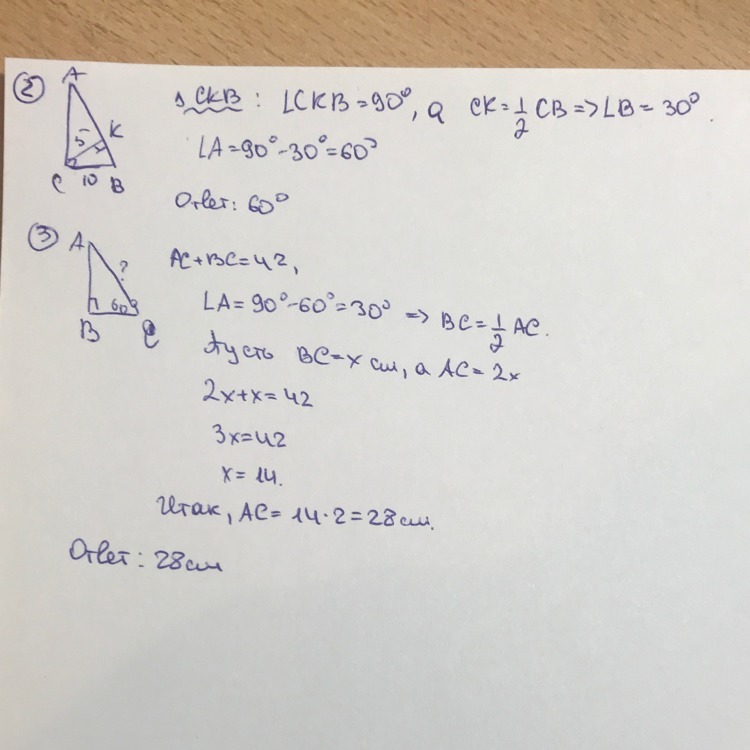 ②
A
K
5
C 10 B
△ CKB : ∠CKB = 90°, а CK = 1/2 CB => ∠B = 30°.
∠A = 90° - 30° = 60°
Ответ: 60°
③
A
?
60°
B C
AC + BC = 42,
∠A = 90° - 60° = 30° => BC = 1/2 AC.
Пусть BC = x см, а AC = 2x
2x + x = 42
3x = 42
x = 14.
Итак, AC = 14 · 2 = 28 см.
Ответ: 28 см